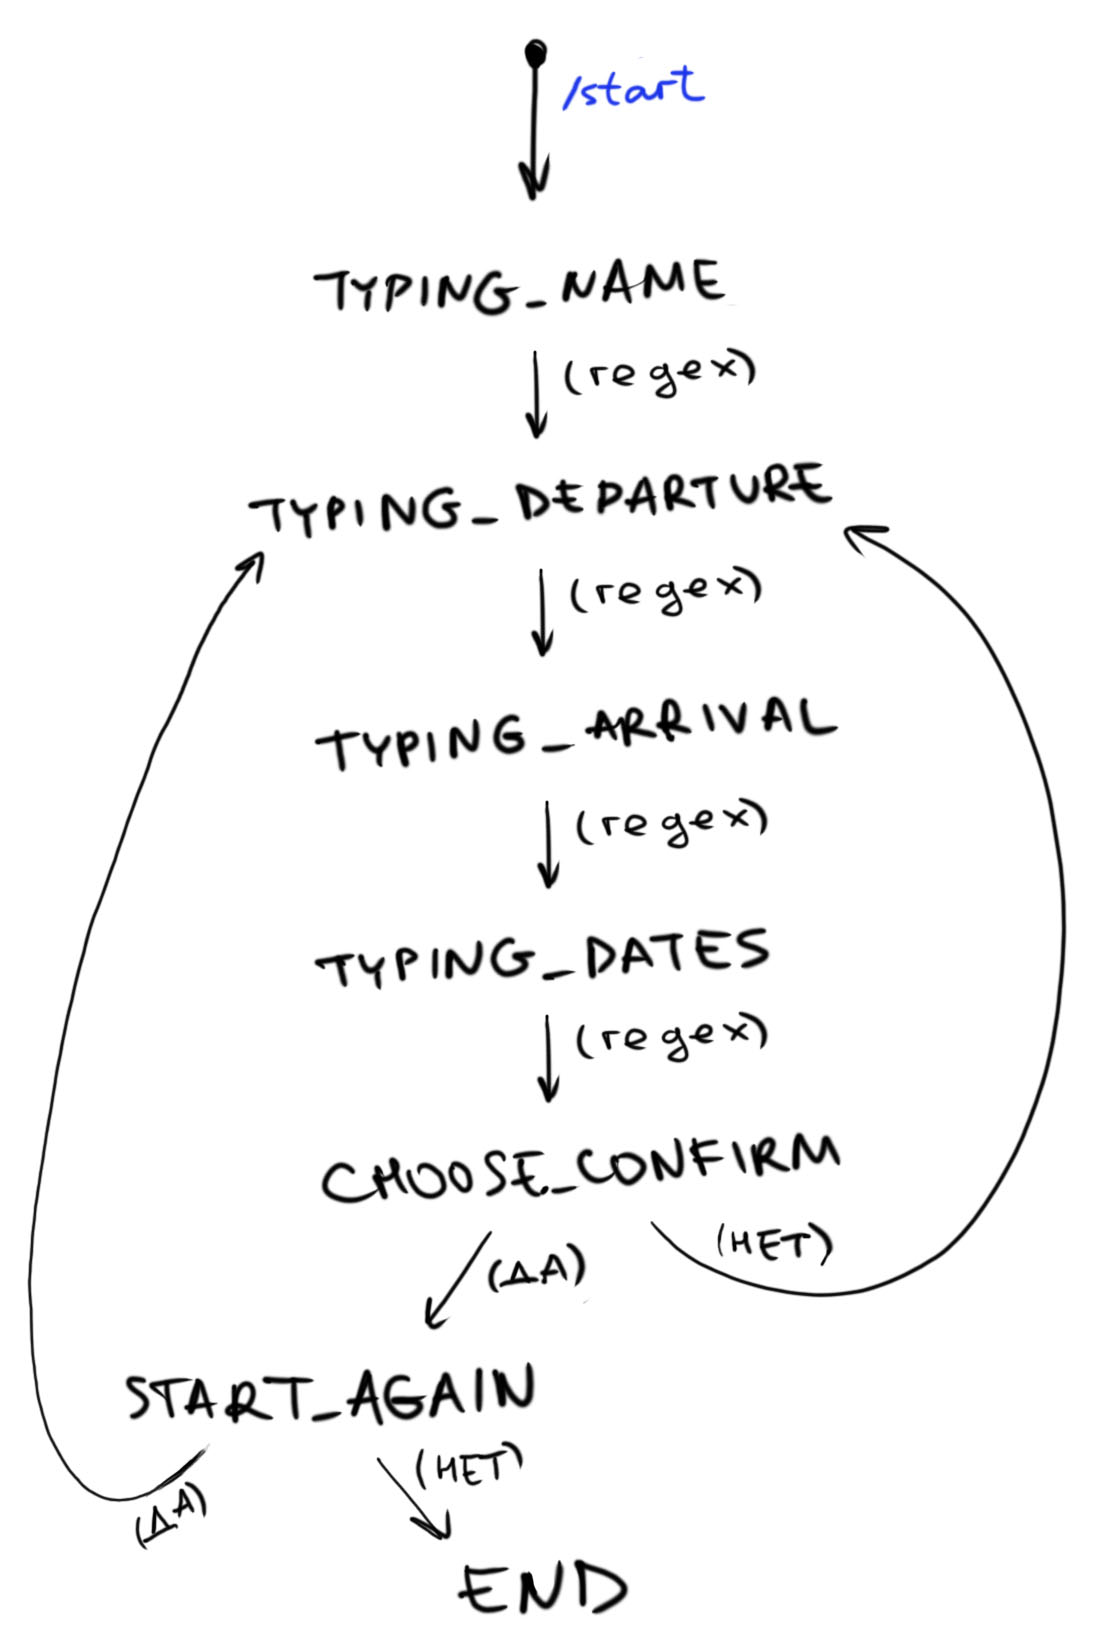 /start
TYPING_NAME
(regex)
TYPING_DEPARTURE
(regex)
TYPING_ARRIVAL
(regex)
TYPING_DATES
(regex)
CHOOSE_CONFIRM
(ДА)
(НЕТ)
START_AGAIN
(ДА)
(НЕТ)
END